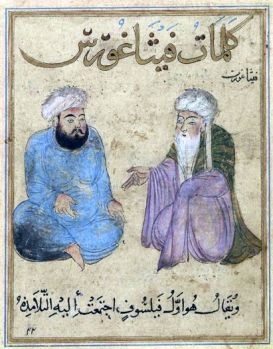 كَلمَاتُ فِيثَاغُورَسَ
فيثاغورس
وَيُقَالُ هُوَ اوَّلُ فَيلسُوفٍ اجتَمعَتْ اِلَيهِ التَّلامِذَهُ
٤٤